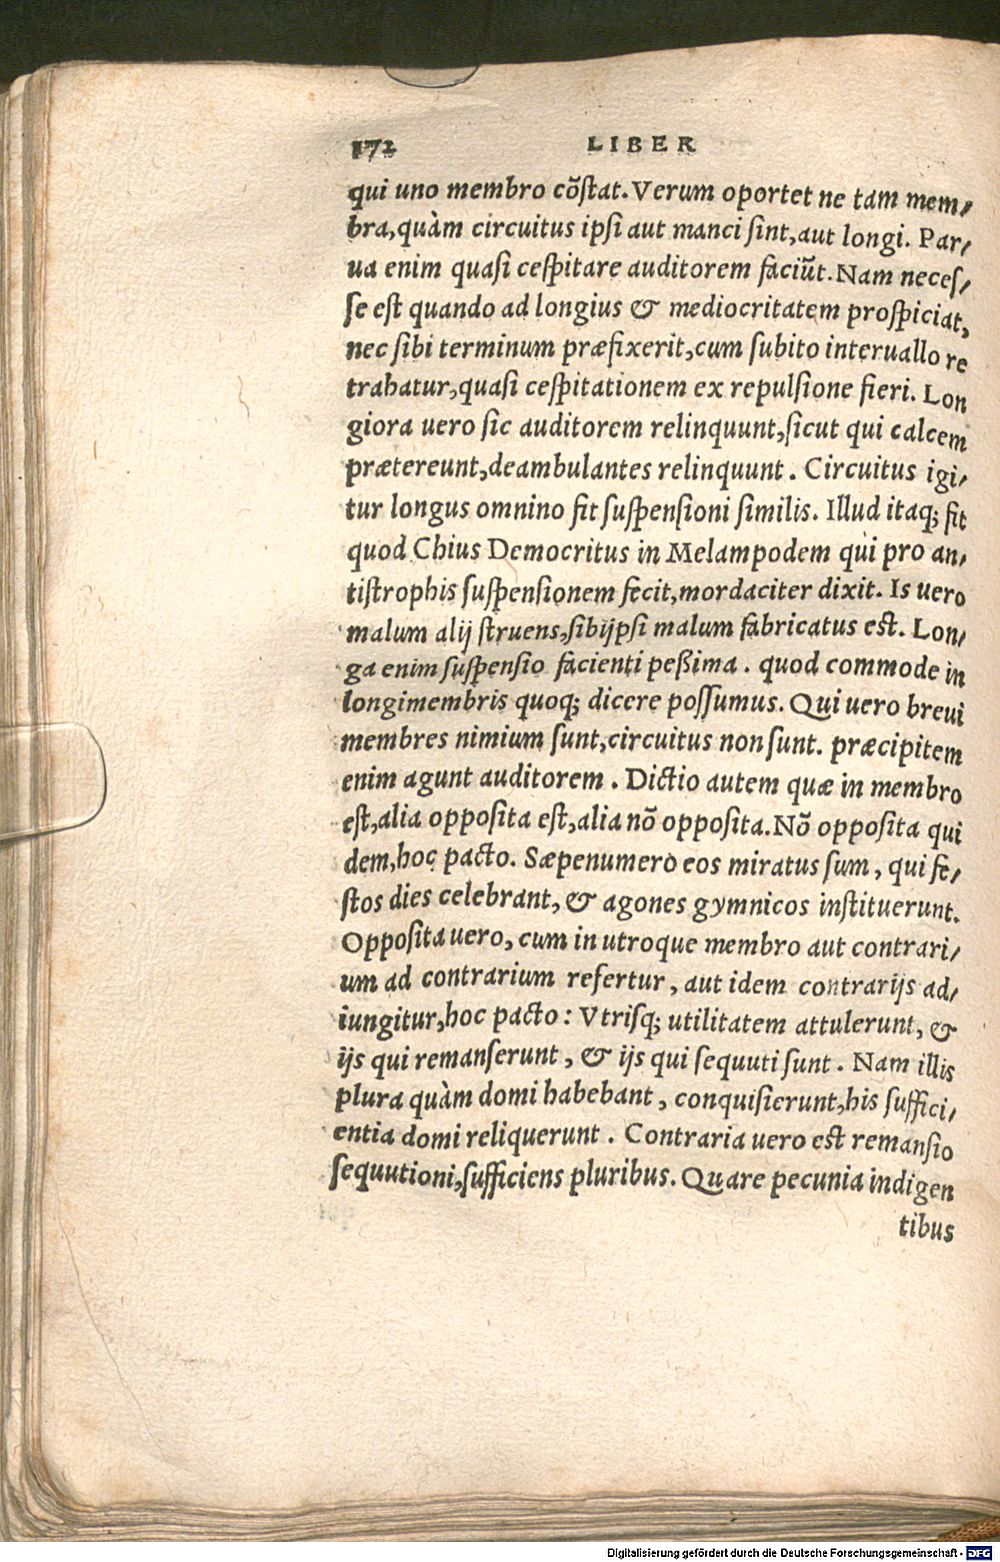 172 LIBER
qui uno membro cõſtat. Verum oportet ne tam mem-
bra, quàm circuitus ipſi aut manci ſint, aut longi. Par-
ua enim quaſi ceſpitare auditorem faciũt. Nam neceſ-
ſe eſt quando ad longius & mediocritatem proſpiciat,
nec ſibi terminum præfixerit, cum ſubito interuallo re
trahatur, quaſi ceſpitationem ex repulſione fieri. Lon
giora uero ſic auditorem relinquunt, ſicut qui calcem
prætereunt, deambulantes relinquunt. Circuitus igi-
tur longus omnino fit ſuſpenſioni ſimilis. Illud itaq; fit
quod Chius Democritus in Melampodem qui pro an-
tiſtrophis ſuſpenſionem fecit, mordaciter dixit. Is uero
malum alij ſtruens, ſibijpſi malum fabricatus eſt. Lon-
ga enim ſuſpenſio facienti peßima. quod commode in
longimembris quoq; dicere poſſumus. Qui uero breui
membres nimium ſunt, circuitus non ſunt. præcipitem
enim agunt auditorem. Dictio autem quæ in membro
eſt, alia oppoſita eſt, alia nõ oppoſita. Nõ oppoſita qui
dem, hoc pacto. Sæpenumero eos miratus ſum, qui fe-
ſtos dies celebrant, & agones gymnicos inſtituerunt.
Oppoſita uero, cum in utroque membro aut contrari-
um ad contrarium refertur, aut idem contrarijs ad-
iungitur, hoc pacto: Vtriſq; utilitatem attulerunt, &
ijs qui remanſerunt, & ijs qui ſequuti ſunt. Nam illis
plura quàm domi habebant, conquiſierunt, his ſuffici-
entia domi reliquerunt. Contraria uero eſt remanſio
ſequutioni, ſufficiens pluribus. Quare pecunia indigen
tibus
Digitalisierung gefördert durch die Deutsche Forschungsgemeinschaft - DFG